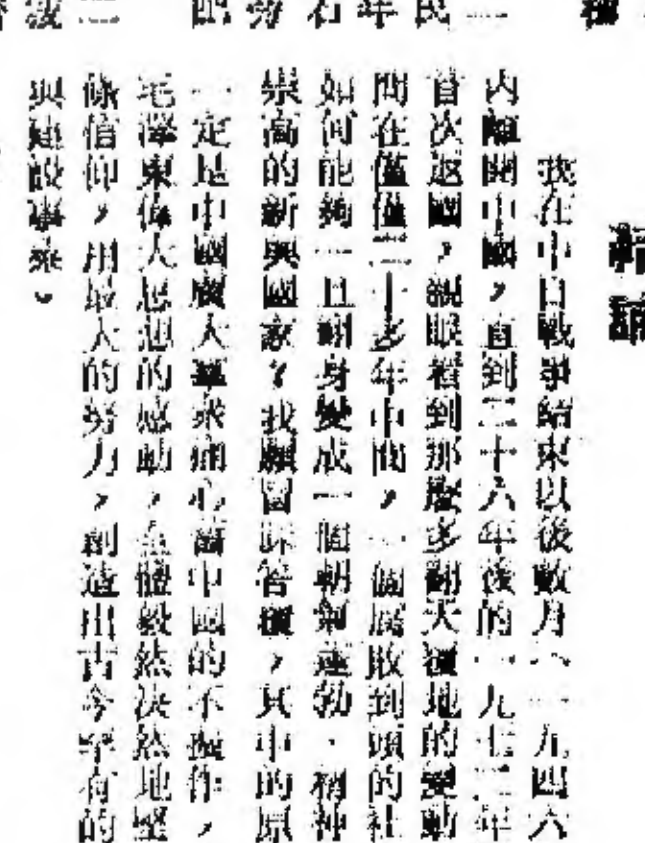 結語
我在中日戰爭結束以後數月（一九四六
內離開中國，直到二十六年後的一九七二年
首次返國，親眼看到那麼多翻天覆地的變動
間在僅僅二十多年中間，一個腐敗到頭的社
如何能夠一旦翻身變成一個朝氣蓬勃、精神
崇高的新興國家？我願圖試答覆，其中的原
一定是中國廣大羣衆痛心舊中國的不振作，
毛澤東偉大思想的感動，全體毅然決然地堅
條信仰，用最大的勞力，創造出古今罕有的
與建設事業。